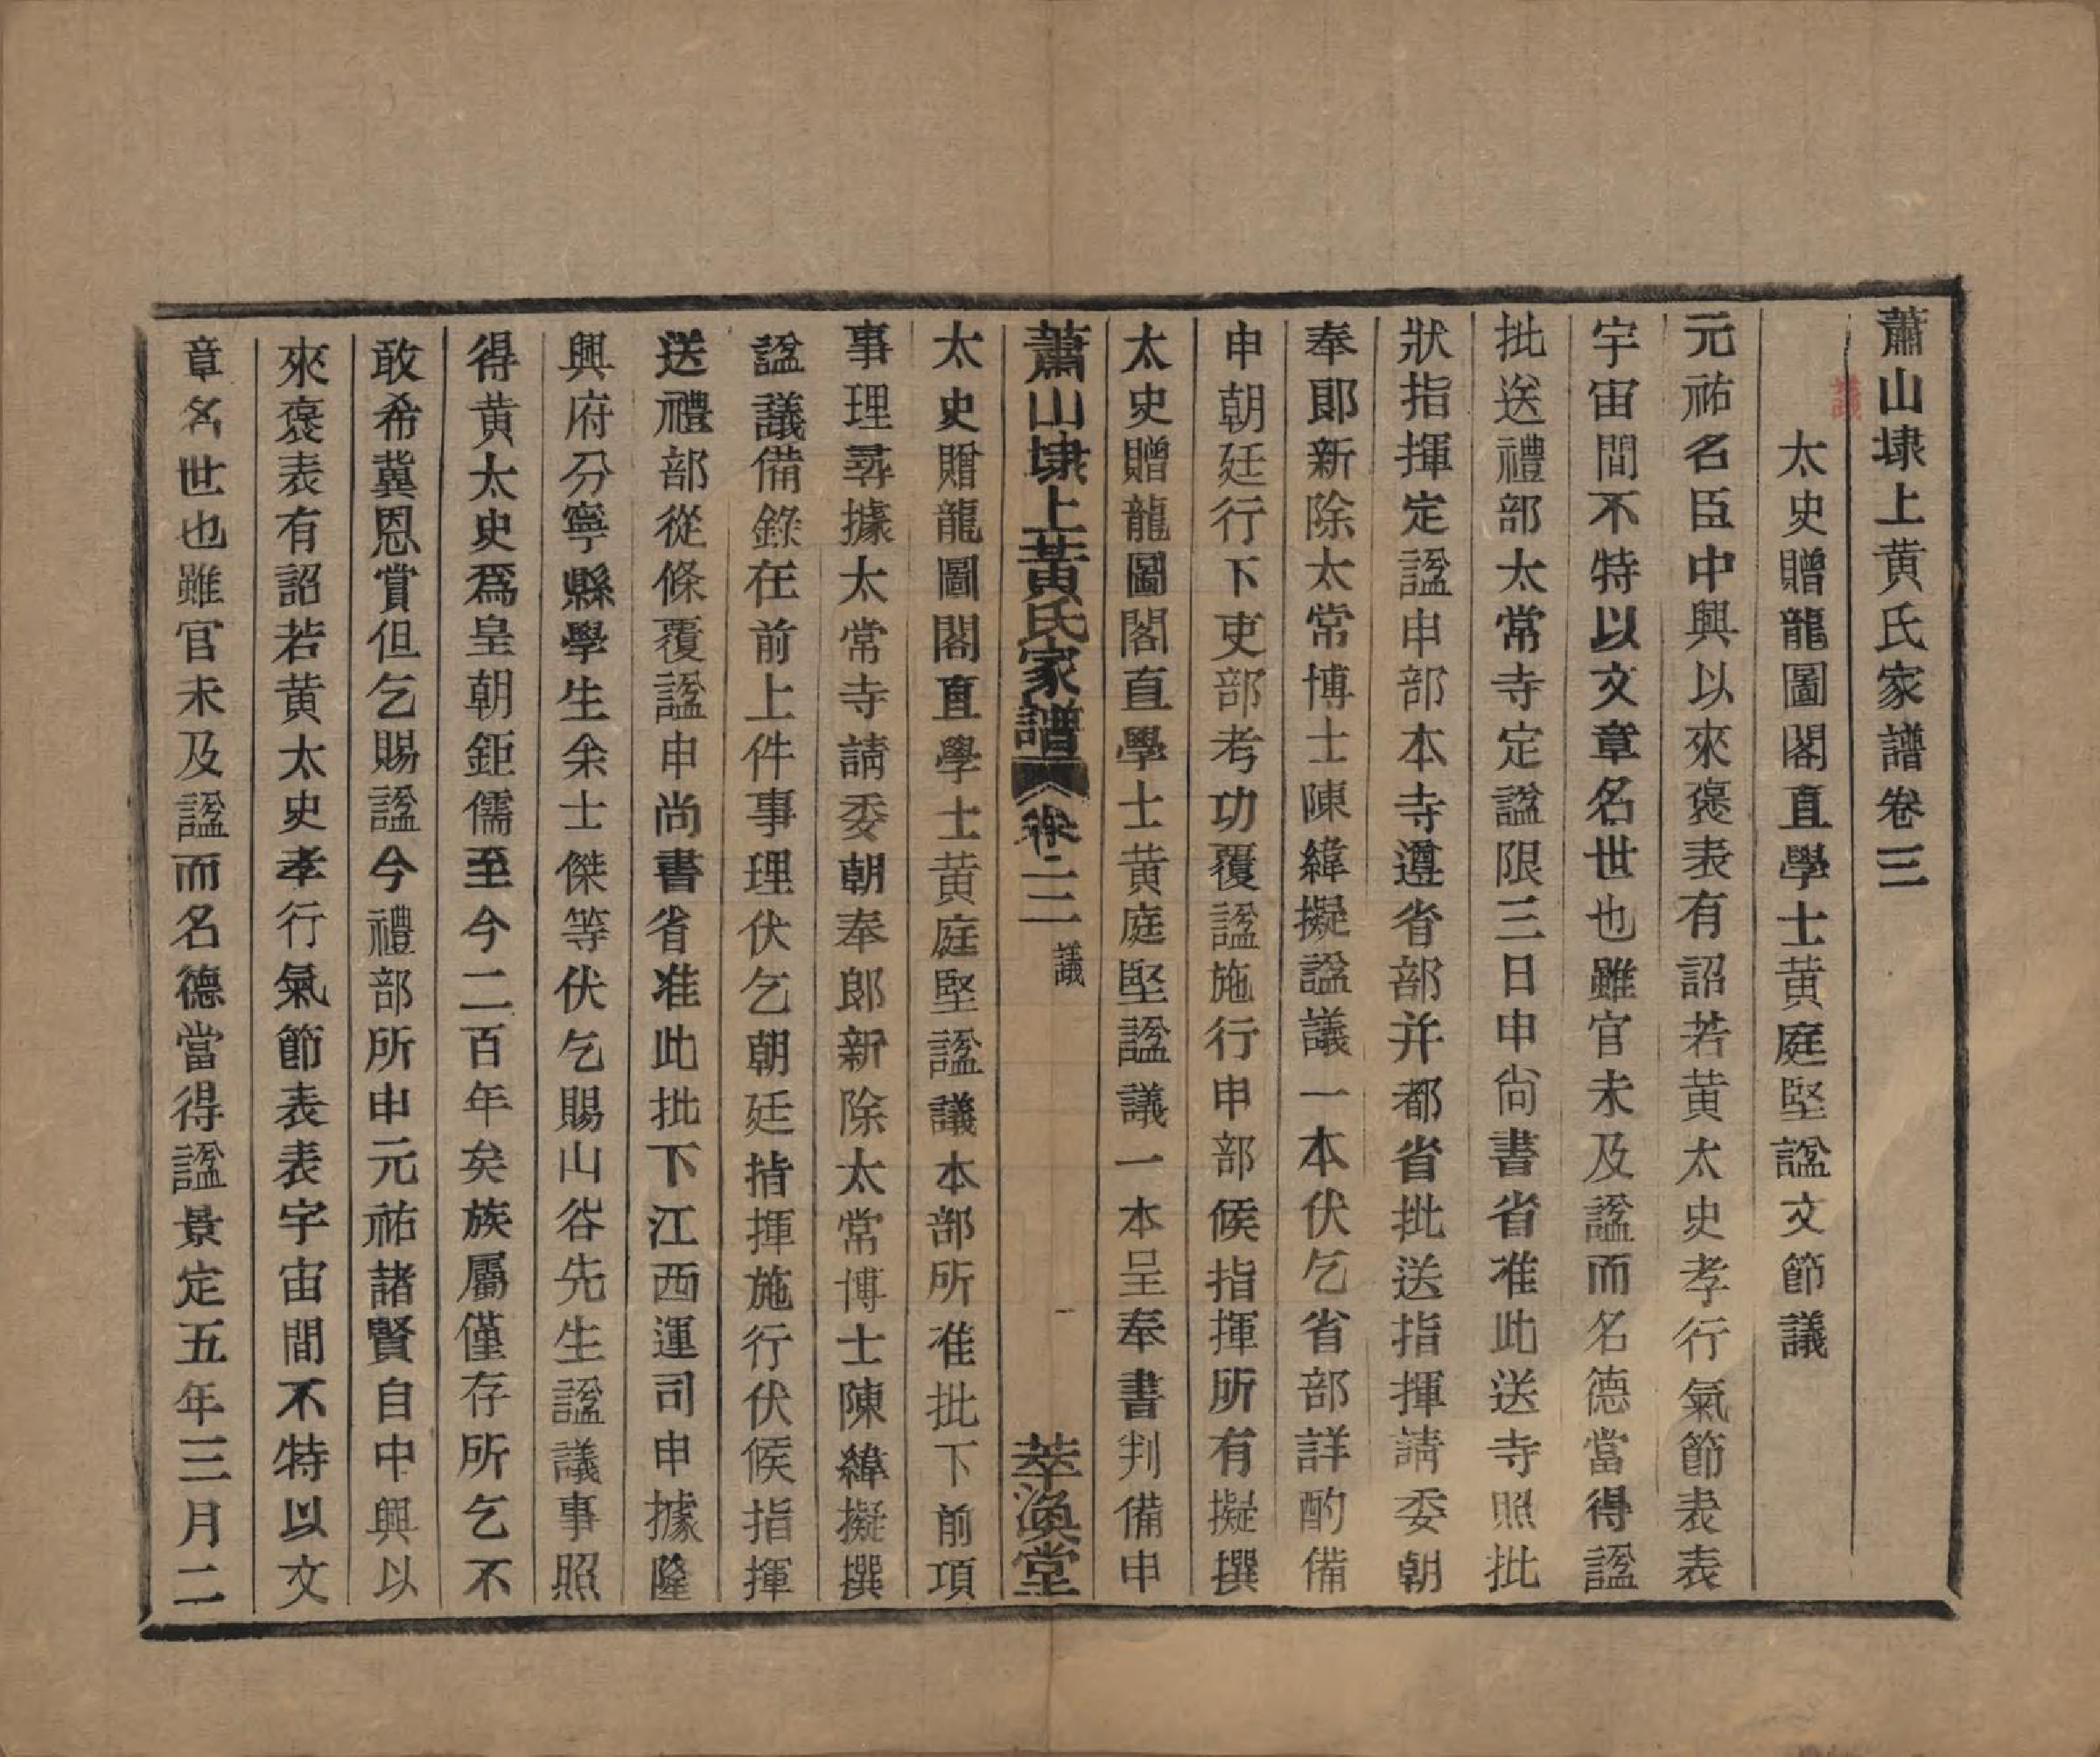 蕭山埭上黄氏家譜卷三
議
太史贈龍圖閣直學士黄庭堅諡文節議
元祐名臣中興以來褒表有詔若黄太史孝行氣節表表
宇宙間不特以文章名世也雖官未及諡而名德當得諡
批送禮部太常寺定諡限三日申尙書省准此送寺照批
狀指揮定諡申部本寺遵省部并都省批送指揮請委朝
奉郎新除太常博士陳緯擬諡議一本伏乞省部詳酌備
申朝廷行下吏部考功覆諡施行申部候指揮所有擬撰
太史贈龍圖閣直學士黄庭堅諡議一本呈奉書判備申
蕭山埭上黄氏家譜 卷三 議 一 萃渙堂
太史贈龍圖閣直學士黄庭堅諡議本部所准批下前項
事理尋據太常寺請委朝奉郎新除太常博士陳緯擬撰
諡議備錄在前上件事理伏乞朝廷指揮施行伏候指揮
送禮部從條覆諡申尚書省准此批下江西運司申據隆
興府分寧縣學生余士傑等伏乞賜山谷先生諡議事照
得黄太史爲皇朝鉅儒至今二百年矣族屬僅存所乞不
敢希冀恩賞但乞賜諡今禮部所申元祐諸賢自中興以
來褒表有詔若黄太史孝行氣節表表宇宙間不特以文
章名世也雖官未及諡而名德當得諡景定五年三月二